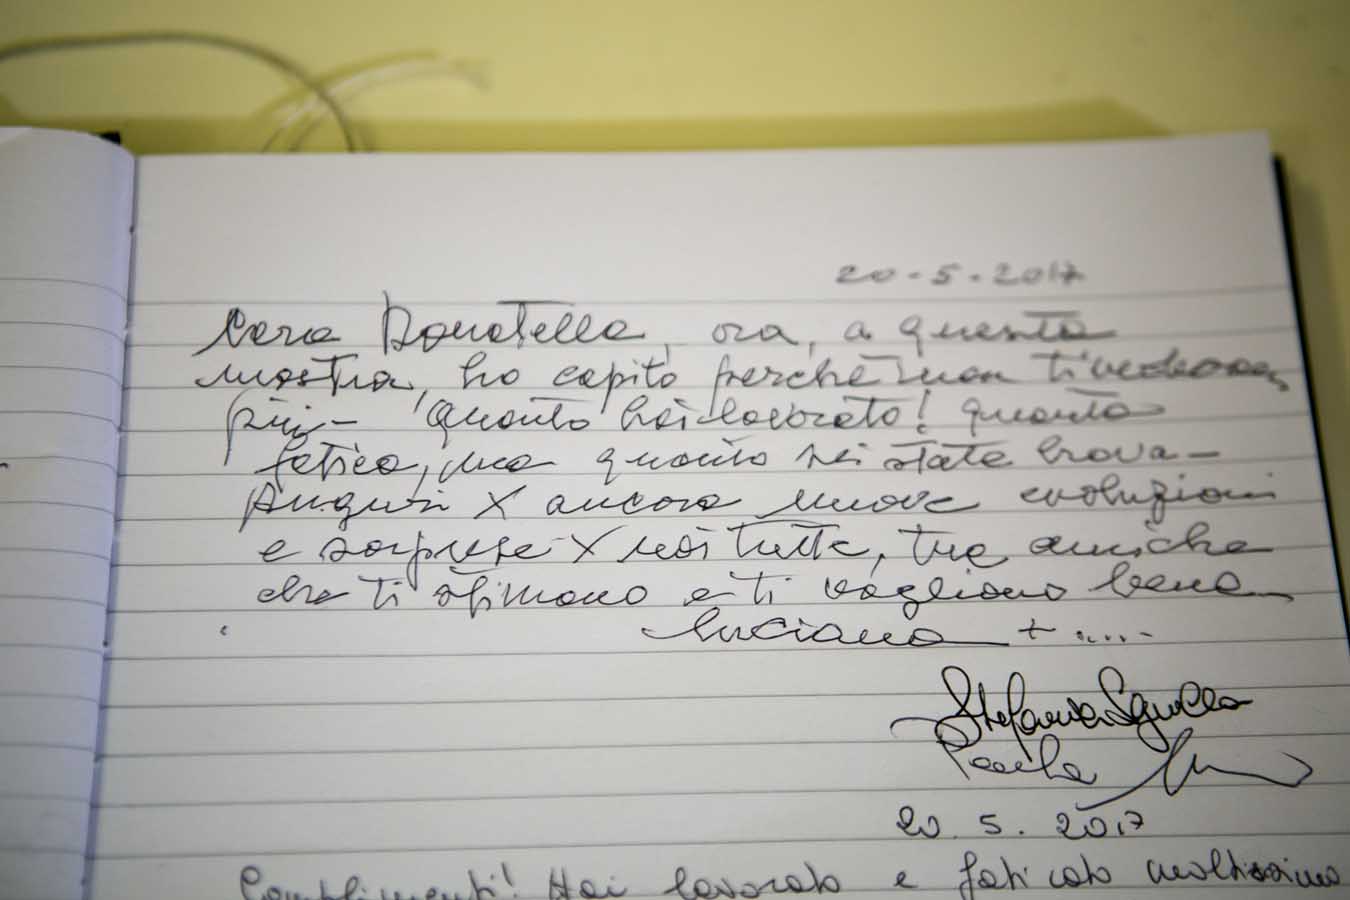 20-5-2017
Cara Donatella, ora, a questa
mostra, ho capito perché non ti vedevano
più- Quanto hai lavorato! quanta
fatica, ma quanto sei stata brava-
Auguri X ancora nuove evoluzioni
e sorprese X noi tutte, tue amiche
che ti stimano e ti vogliono bene
Luciana + .....
Stefania
Paola
20.5.2017
Complimenti! Hai lavorato e faticato moltissimo